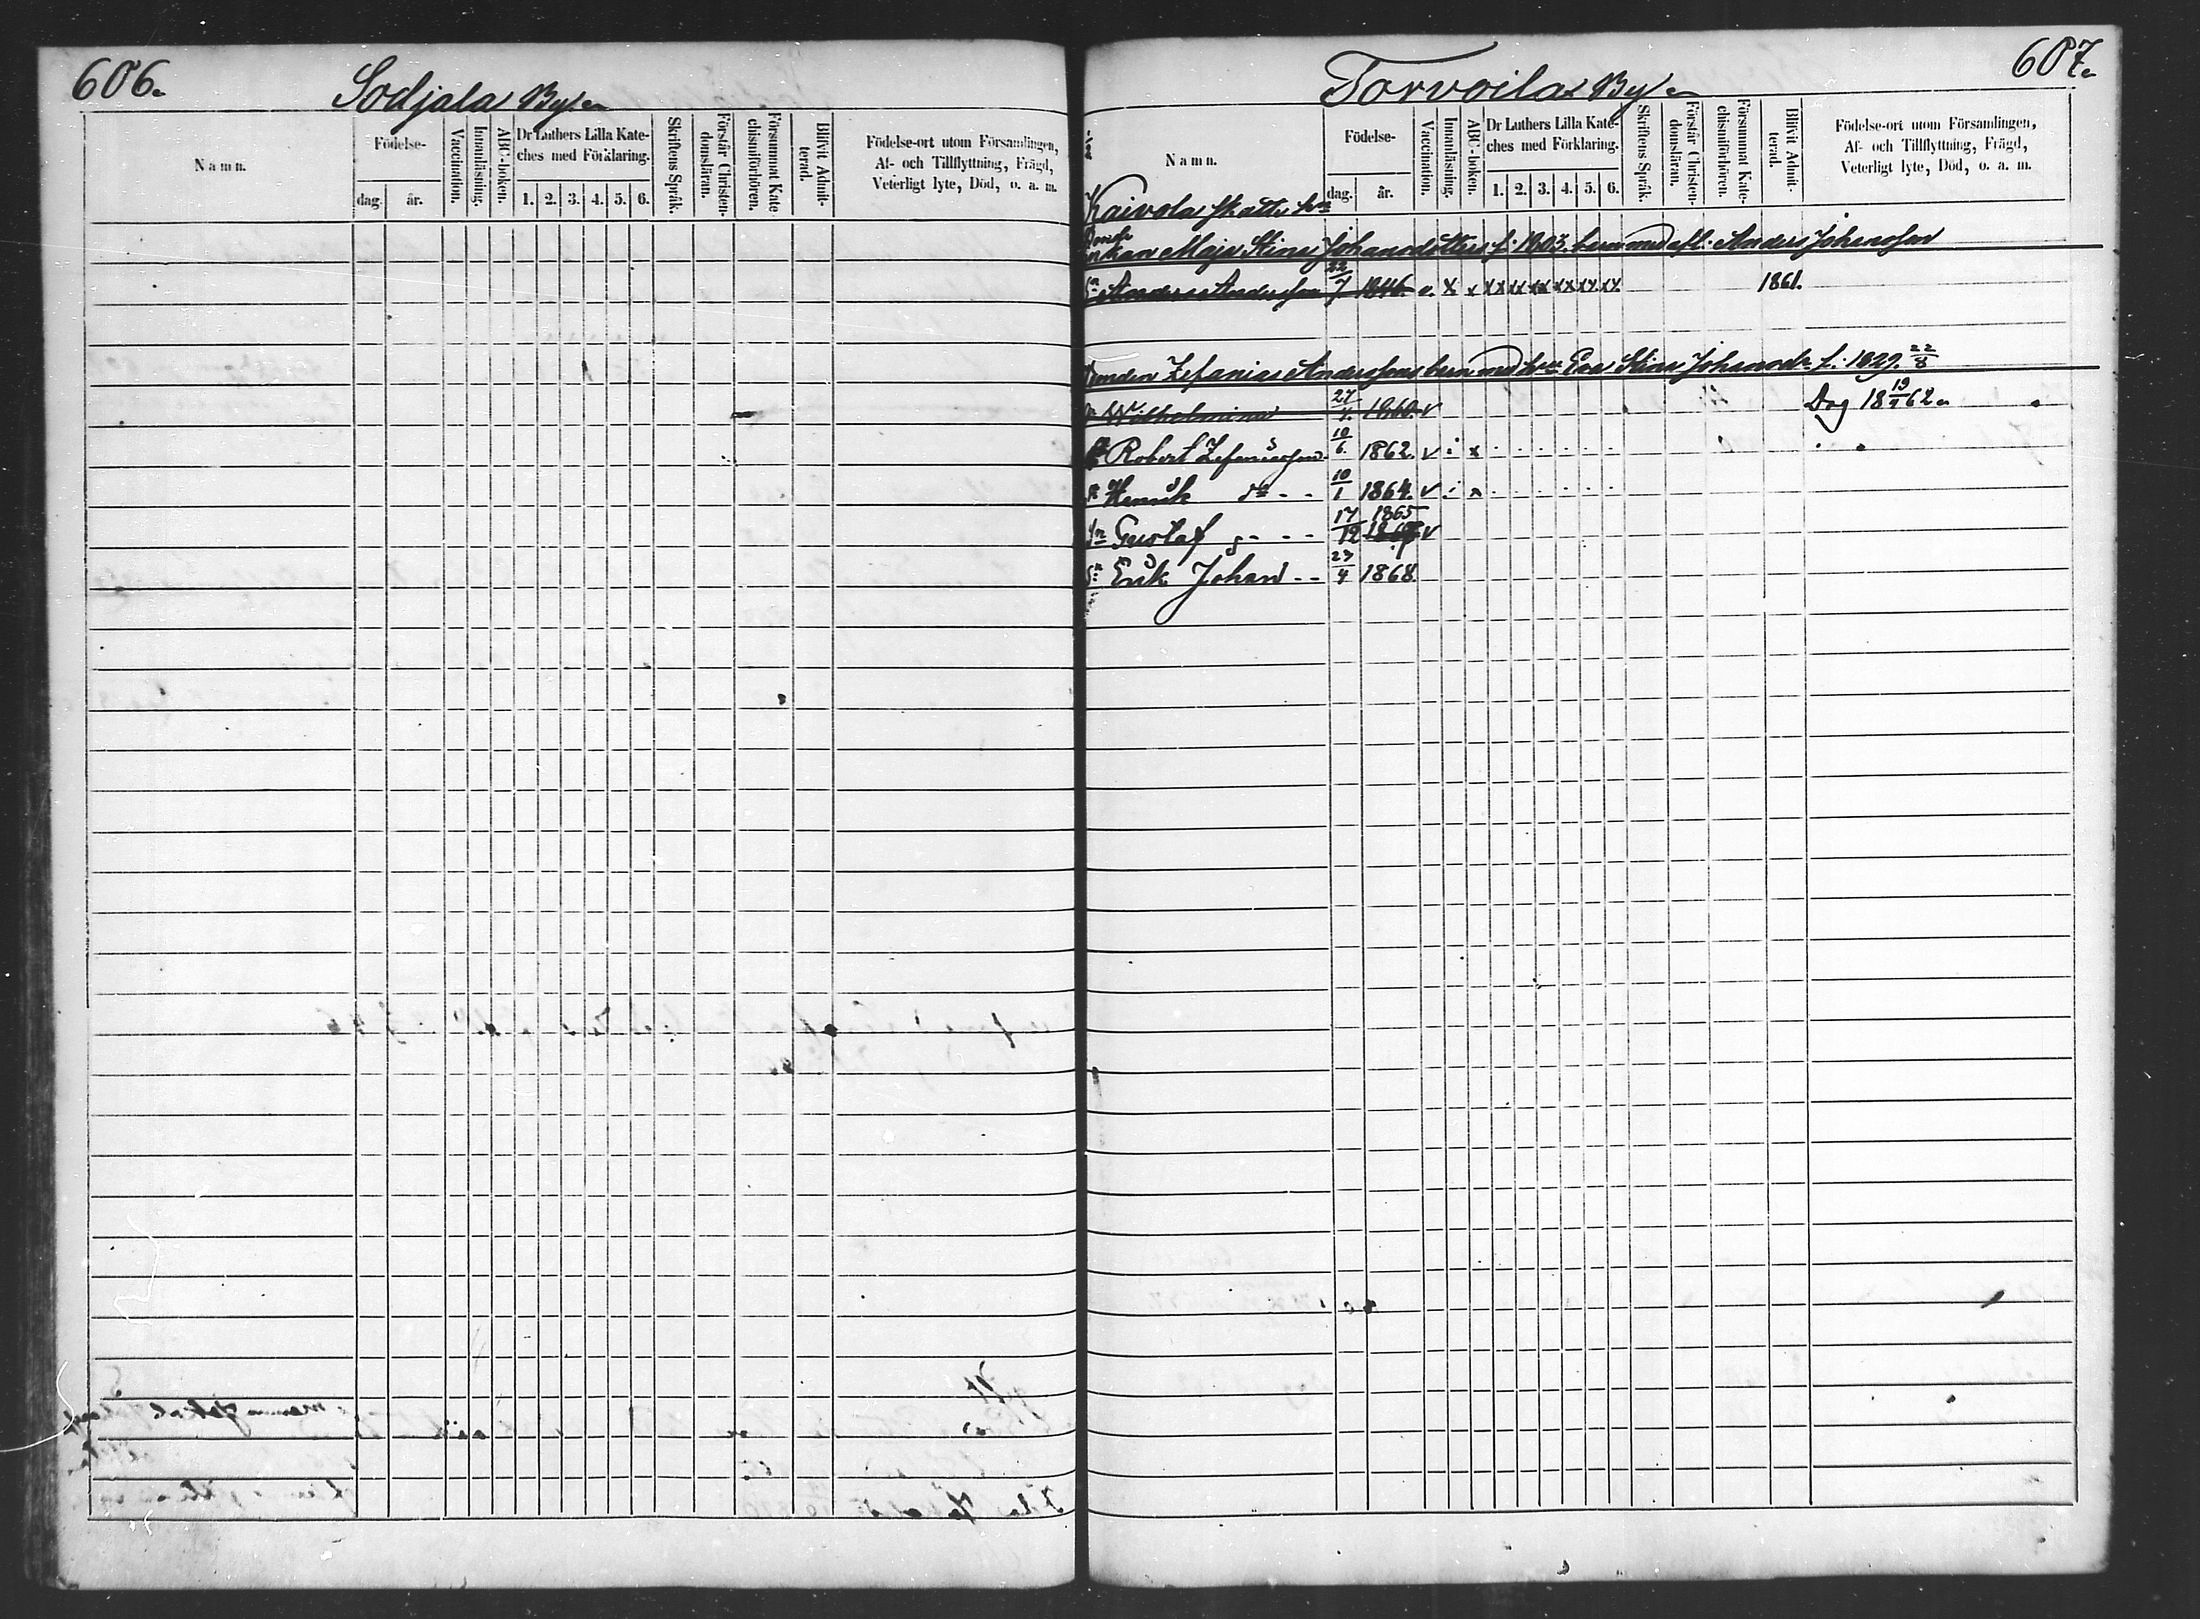 606.
Sodjala By
Namn.
Födelse-
dag.
år.
Vaccination.
Innanläsning.
ABC-boken.
Dr Luthers Lilla Kate-
ches med Förklaring.
1. 2. 3. 4. 5. 6.
Skriftens Språk.
Förstår Christen-
domsläran.
Försummat Kate
chismiförhören.
Blifvit Admit-
terad.
Födelse-ort utom Församlingen,
Af- och Tillflyttning, Frägd,
Veterligt lyte, Död, o. a. m.
607.
Torvoila By
Namn.
Födelse-
dag.
år.
Vaccination.
Innanläsning.
ABC-boken.
Dr Luthers Lilla Kate-
ches med Förklaring.
1. 2. 3. 4. 5. 6.
Skriftens Språk.
Förstår Christen-
domsläran.
Försummat Kate-
chismiförhören.
Blifvit Admit-
terad.
Födelse-ort utom Församlingen,
Af- och Tillflyttning, Frägd,
Veterligt lyte, Död, o. a. m.
Kaivola skatte hn
Enkan Maja Stina Johansdotters f. 1803. barn med afl. Anders Johansson
Sn Anders Andersson 22/7 1846. v. x x xx xx xx xx xx xx 1861.
Bonden Zefanias Anderssons barn med hu Eva Stina Johansdr f. 1829. 22/8
Wilhelmina 1860. v Dog 18 19/1 62.
Sn Robert Zefaniasson 10/6 1862. v i x
Sn Henrik dn 10/1 1864. v i x
Sn Gustaf 17/12 1865 v
Sn Erik Johan 23/4 1868.